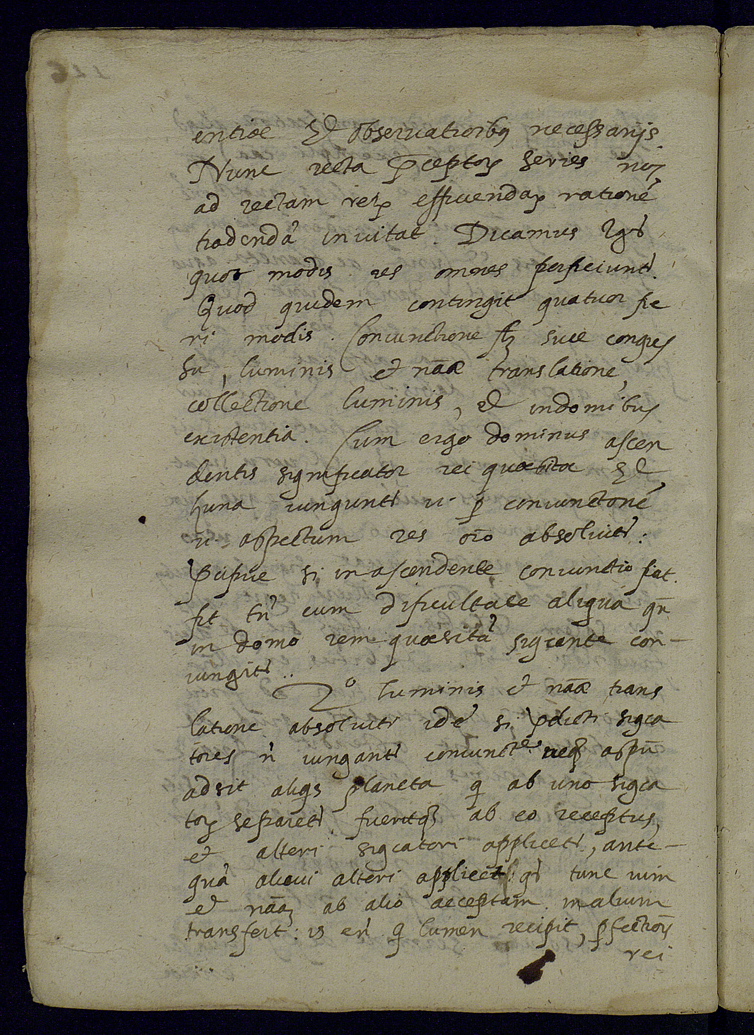 entiae et observationibꝰ necessarijs
Nunc recta pceptoꝝ series nos
ad rectam reiꝝ efficiendaꝝ rationē
tradendā invitat. Dicamus igr̄
quot modis res omnes perficiunt̄.
Quod quidem contingit quatuor fie
ri modis. Coniunctione sꝫ sive congres
su, luminis et nāae translatione,
collectione luminis, et in domibus
existentia. Cum ergo dominus ascen
dentis significator rei quaesitae et
Luna iungunt̄ vi ꝑ coniunctionē
vi aspectum res oīo absolvit̄:
si in ascendente coniunctio fiat.
fit tn̄ cum dificultate aliqua qn̄
in domo rem quaesitā sigcante con-
iungit̄.
2º luminis et nāae trans
latione absolvit̄ idē si pdicti sigca
tores n̄ iungant̄ coniunctᵉ neqꝫ aspū
adsit aliqs planeta q ab uno sigca
toꝝ separet̄ fueritqꝫ ab eo receptus,
et alteri sigcatori applicet̄, ante-
quā alicui alteri applicet̄: qr̄ tunc vim
et nāaꝫ ab alio acceptam in alium
transfert: is en̄ q lumen recipit, pfectionē
rei